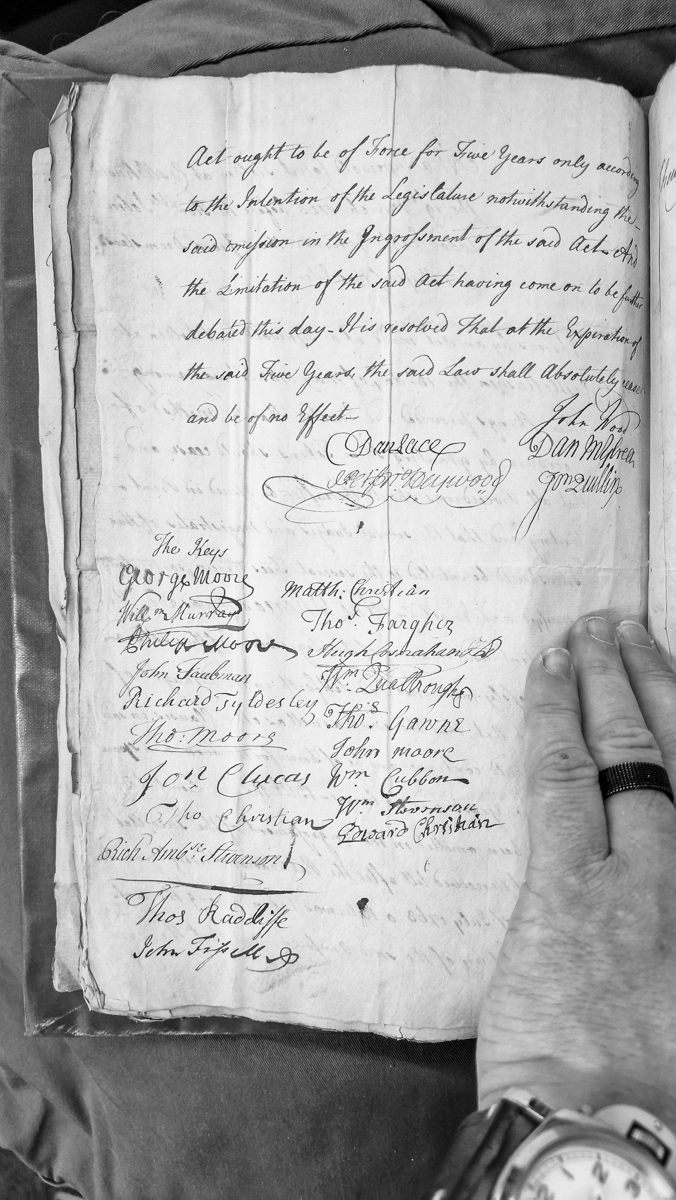 Act ought to be of Force for Five Years only according
to the Intention of the Legislature notwithstanding the
said omission in the Ingrossment of the said Act - And
the Limitation of the said Act having come on to be further
debated this day - It is resolved That at the Expiration of
the said Five Years, the said Law shall Absolutely cease
and be of no Effect -
John Wood
Danl Lace Dan Mylrea
Heywood Jon Quillin
The Keys
George Moore
Matth: Christian
Willm Murray
Thos. Fargher
Philip Moore
Hugh
John Taubman
Wm. Qualtrough
Richard Tyldesley
Thos Gawne
Tho: Moore
John moore
Jon Clucas
Wm Cubbon
Tho Christian
Wm Stevenson
Edward Christian
Rich Ambse: Stevenson
Thos Radcliffe
John
1 2 3